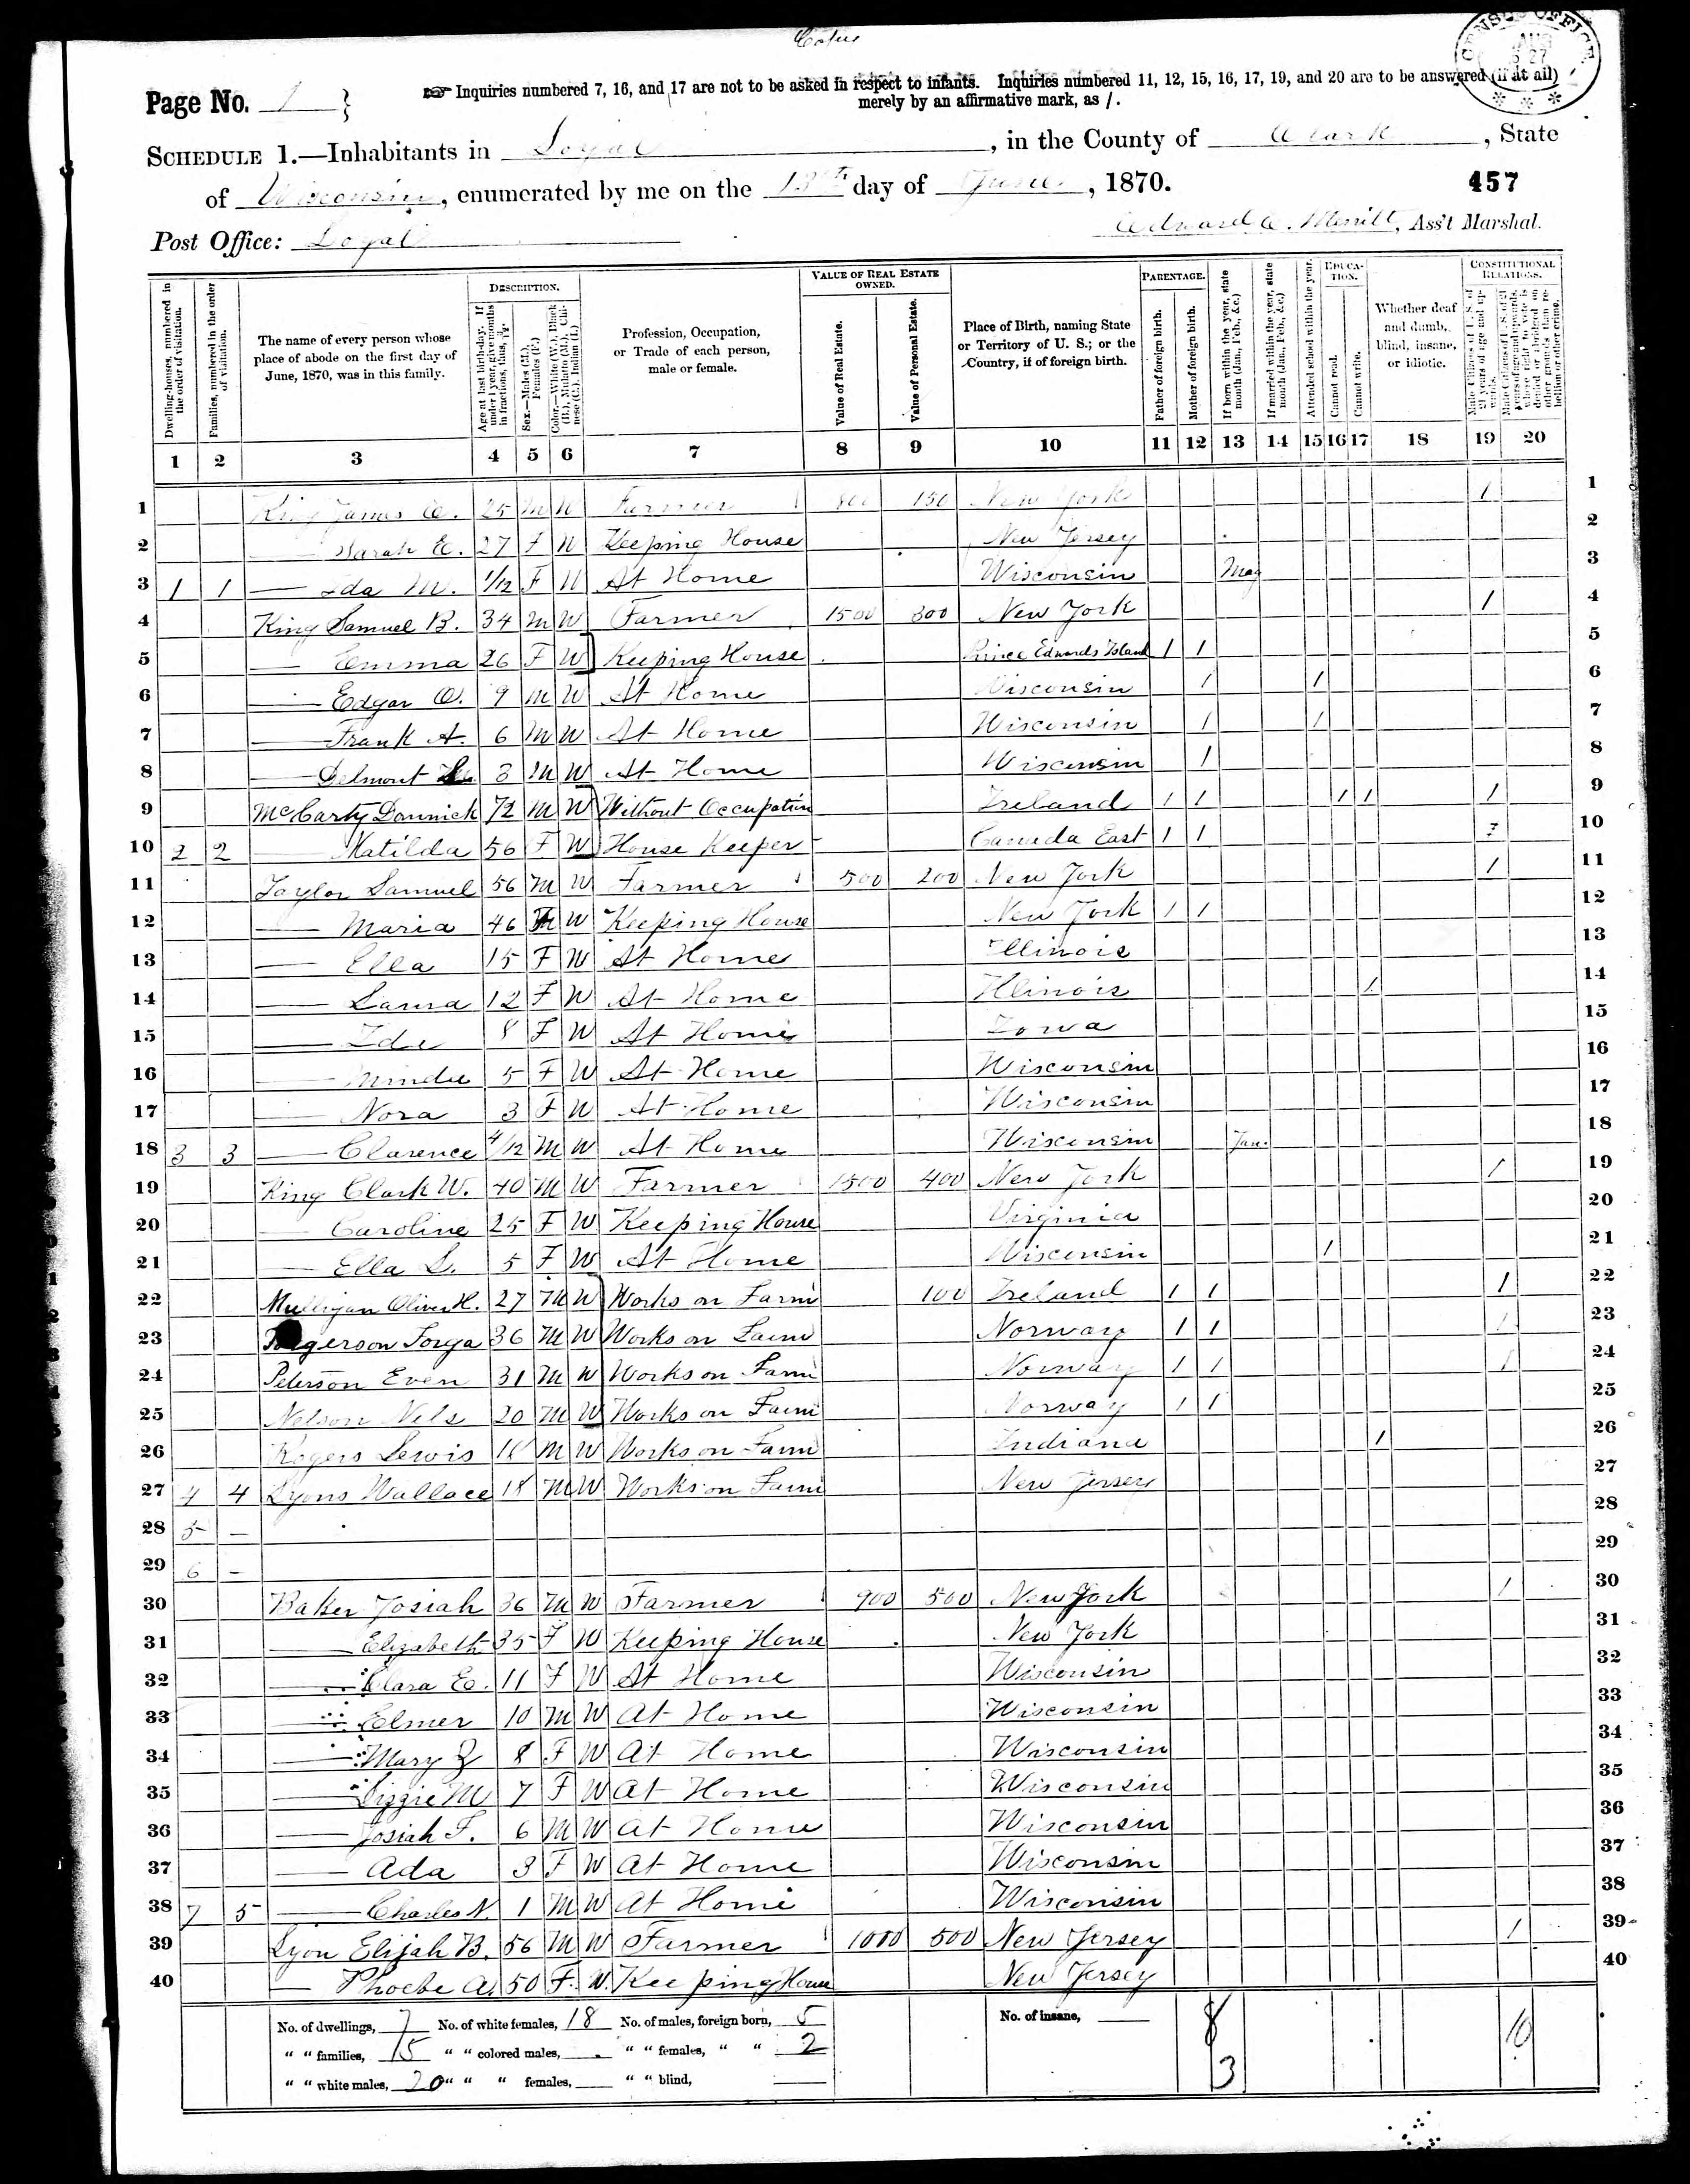 Copy
CENSUS OFFICE
AUG
27
Page No. 1 }
☞ Inquiries numbered 7, 16, and 17 are not to be asked in respect to infants. Inquiries numbered 11, 12, 15, 16, 17, 19, and 20 are to be answered (if at all)
merely by an affirmative mark, as /.
SCHEDULE 1.—Inhabitants in Loyal, in the County of Clark, State
of Wisconsin, enumerated by me on the 13th day of June, 1870.
457
Post Office: Loyal
Edward C. Merrill, Ass't Marshal.
Dwelling-houses, numbered in the order of visitation.
Families, numbered in the order of visitation.
The name of every person whose place of abode on the first day of June, 1870, was in this family.
DESCRIPTION.
Age at last birth-day. If under 1 year, give months in fractions, thus,
Sex.—Males (M.), Females (F.)
Color.—White (W.), Black (B.), Mulatto (M.), Chinese (C.), Indian (I.)
Profession, Occupation, or Trade of each person, male or female.
VALUE OF REAL ESTATE OWNED.
Value of Real Estate.
Value of Personal Estate.
Place of Birth, naming State or Territory of U. S.; or the Country, if of foreign birth.
PARENTAGE.
Father of foreign birth.
Mother of foreign birth.
If born within the year, state month (Jan., Feb., &c.)
If married within the year, state month (Jan., Feb., &c.)
Attended school within the year.
EDUCATION.
Cannot read.
Cannot write.
Whether deaf and dumb, blind, insane, or idiotic.
CONSTITUTIONAL RELATIONS.
Male Citizens of U. S. of 21 years of age and upwards.
Male Citizens of U. S. of 21 years of age and upwards, where right to vote is denied or abridged on other grounds than rebellion or other crime.
1 2 3 4 5 6 7 8 9 10 11 12 13 14 15 16 17 18 19 20
1 King James C. 25 M W Farmer 800 150 New York / 1
2 — Sarah E. 27 F W Keeping House New Jersey 2
3 1 1 — Ida M. 1/12 F W At Home Wisconsin May 3
4 King Samuel B. 34 M W Farmer 1500 300 New York / 4
5 — Emma 26 F W Keeping House Prince Edwards Island / / 5
6 — Edgar O. 9 M W At Home Wisconsin / / 6
7 — Frank A. 6 M W At Home Wisconsin / / 7
8 — Delmont 3 M W At Home Wisconsin / 8
9 McCarty Dominick 72 M W Without Occupation Ireland / / / / / 9
10 2 2 — Matilda 56 F W House Keeper Canada East / / 10
11 Taylor Samuel 56 M W Farmer 500 200 New York / 11
12 — Maria 46 F W Keeping House New York / / 12
13 — Ella 15 F W At Home Illinois 13
14 — Laura 12 F W At Home Illinois / 14
15 — Ida 8 F W At Home Iowa 15
16 — 5 F W At Home Wisconsin 16
17 — Nora 3 F W At Home Wisconsin 17
18 3 3 — Clarence 4/12 M W At Home Wisconsin Jan. 18
19 King Clark W. 40 M W Farmer 1500 400 New York / 19
20 — Caroline 25 F W Keeping House Virginia 20
21 — Ella L. 5 F W At Home Wisconsin / 21
22 Mulligan Oliver H. 27 M W Works on Farm 100 Ireland / / / 22
23 Torga 36 M W Works on Farm Norway / / / 23
24 Peterson Even 31 M W Works on Farm Norway / / / 24
25 Nelson Nels 20 M W Works on Farm Norway / / 25
26 Rogers Lewis M W Works on Farm Indiana / 26
27 4 4 Lyons Wallace 18 M W Works on Farm New Jersey 27
28 5 — 28
29 6 — 29
30 Baker Josiah 36 M W Farmer 900 500 New York / 30
31 — Elizabeth 35 F W Keeping House New York 31
32 — Clara E. 11 F W At Home Wisconsin 32
33 — Elmer 10 M W At Home Wisconsin 33
34 — Mary Z 8 F W At Home Wisconsin 34
35 — Lizzie M 7 F W At Home Wisconsin 35
36 — Josiah F. 6 M W At Home Wisconsin 36
37 — Ada 3 F W At Home Wisconsin 37
38 7 5 — Charles N. 1 M W At Home Wisconsin 38
39 Lyon Elijah B. 56 M W Farmer 1000 500 New Jersey / 39
40 — Phoebe A. 50 F. W. Keeping House New Jersey 40
No. of dwellings, 7 No. of white females, 18 No. of males, foreign born, 5 No. of insane, 8 10
" " families, 15 " " colored males, " " females, " " 2
" " white males, 20 " " " females, " " blind, 3